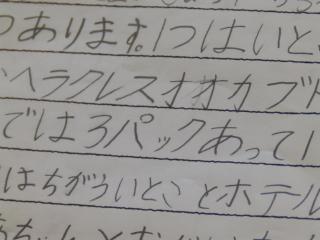 つあります。1つはいと
ヘラクレスオオカブト
では3パックあって1
はちがういとことホテル